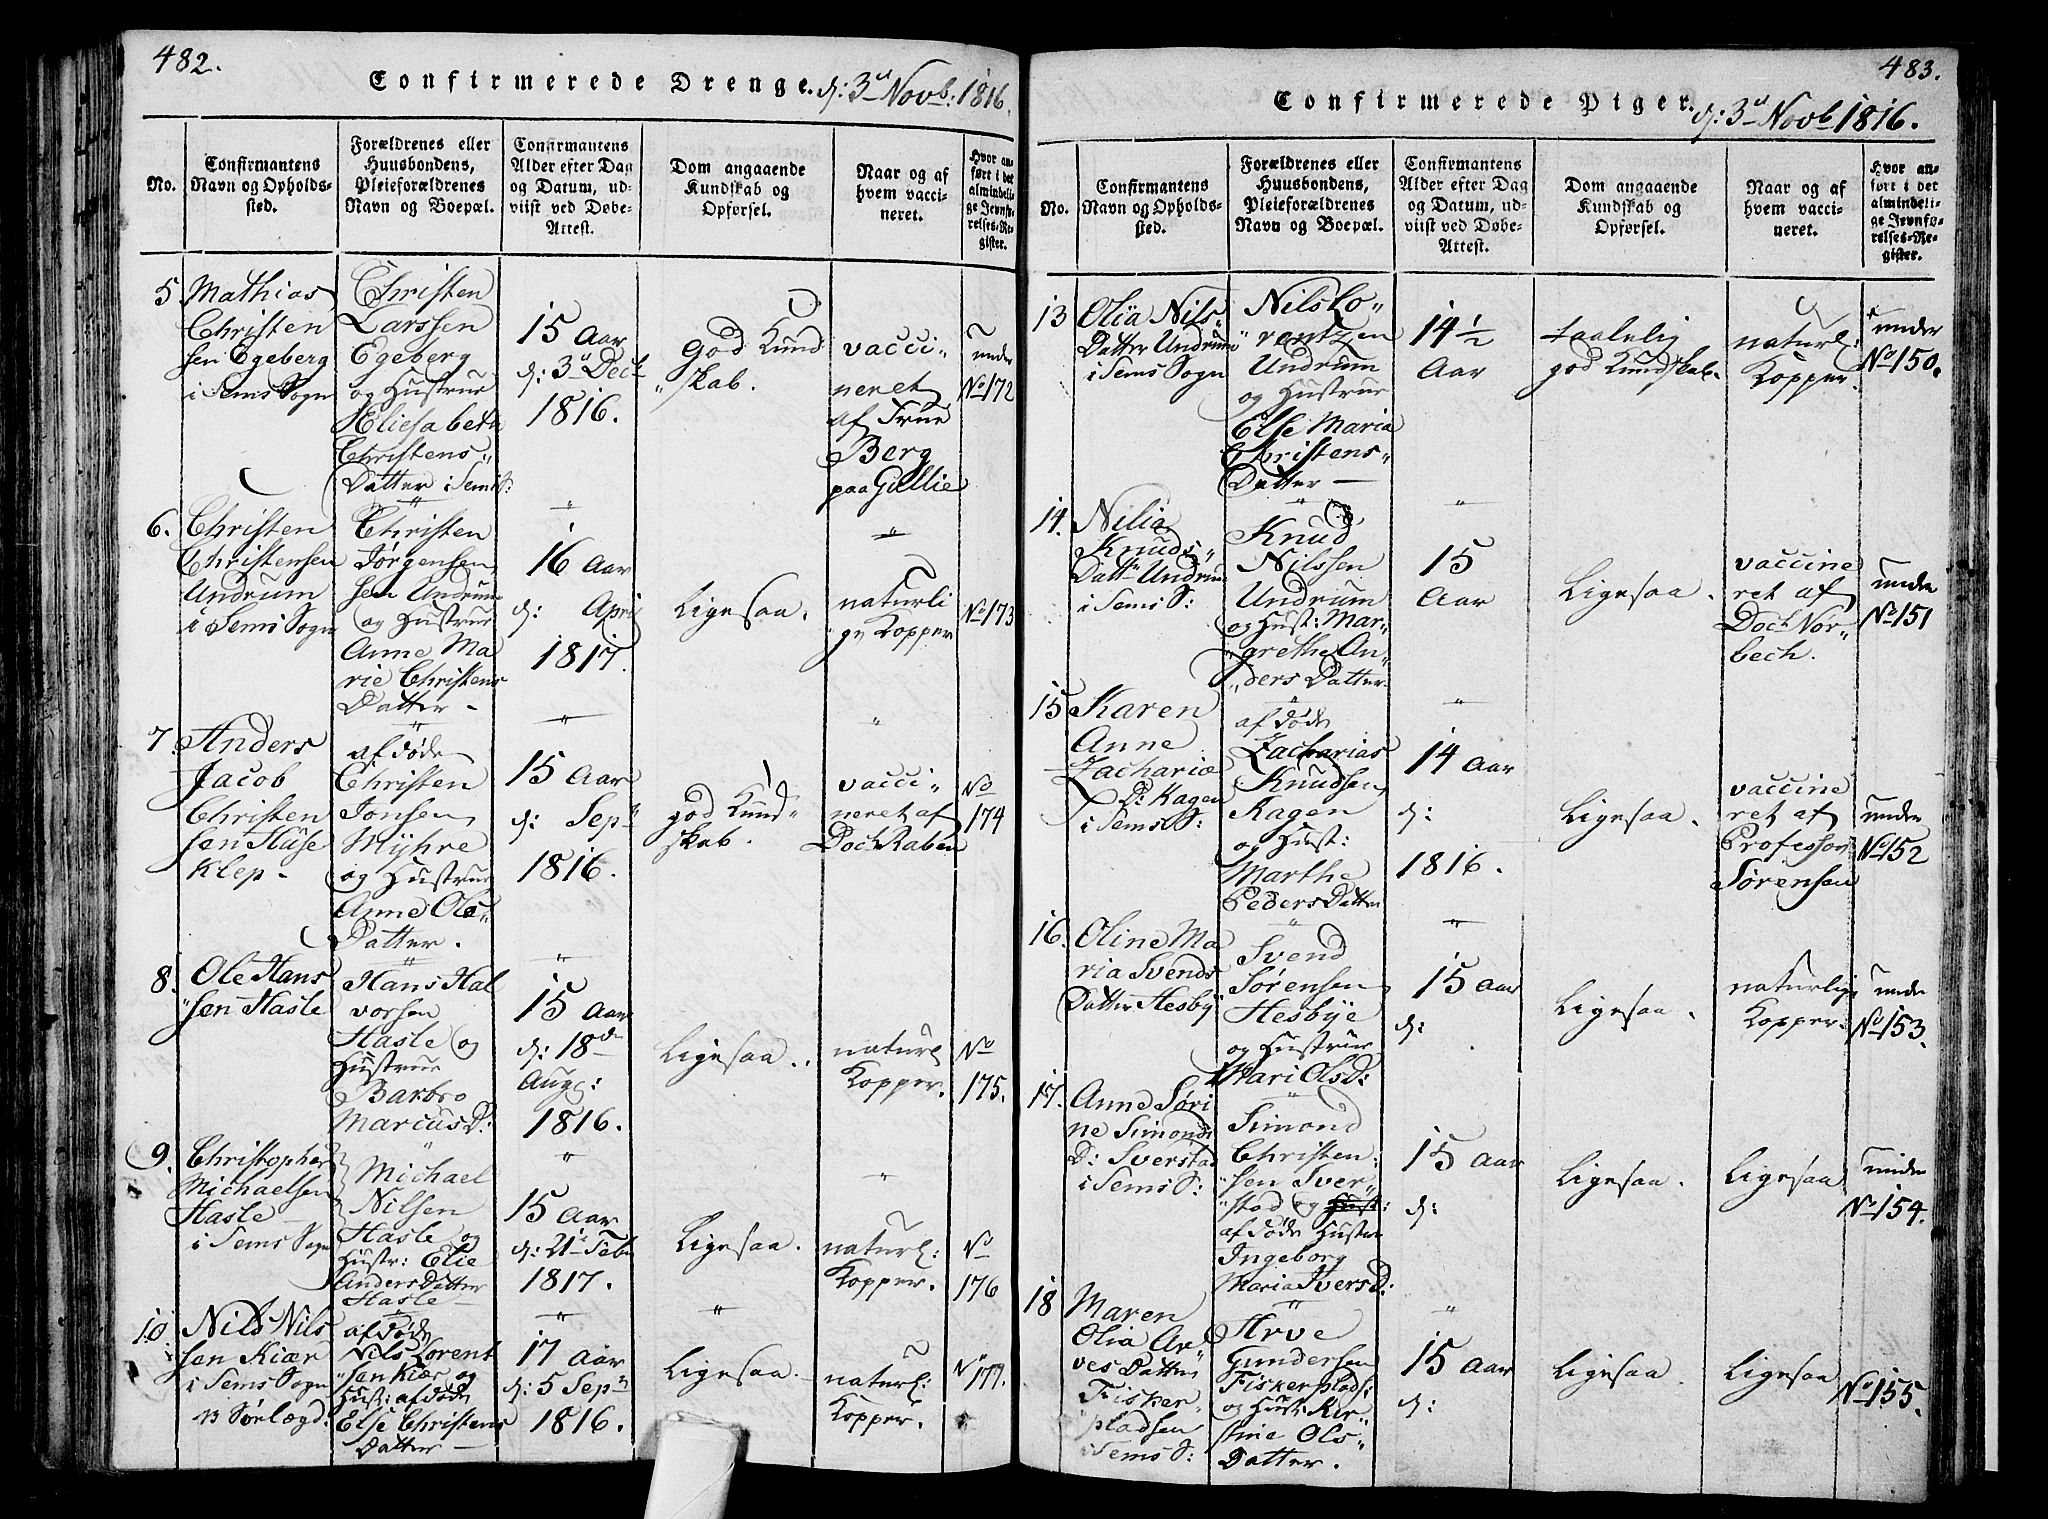 482.
Confirmerede Drenge. d: 3d Novb: 1816.
No.
Confirmantens
Navn og Opholds-
sted.
Forældrenes eller
Huusbondens,
Pleieforældrenes
Navn og Boepæl.
Confirmantens
Alder efter Dag
og Datum, ud-
viist ved Døbe-
Attest.
Dom angaaende
Kundskab og
Opførsel.
Naar og af
hvem vacci-
neret.
Hvor an-
ført i det
almindeli-
ge Jevnfø-
relses-Re-
gister.
5
Mathias
Christen
sen Egeberg
i Sems Sogn
Christen
Larssen
Egeberg
og Hustrue
Eliesabeth
Christens
Datter i Sem S:
15 Aar
d: 3 Decb
1816.
God Kund
skab.
vacci
neret
af Frue
Berg
paa Gullie
under
No 172
6.
Christen
Christensen
Undrum
i Sems Sogn
Christen
Jørgensen
sen Undrum
og Hustrue
Anne Ma
rie Christens
Datter
16 Aar
d: April
1817.
Ligesaa.
naturli
ge Kopper
No 173
7.
Anders
Jacob
Christen
sen Huse
Klep
afdøde
Christen
Jonsen
Myhre
og Hustrue
Anne Ols
Datter.
15 Aar
d: Sep
1816.
god Kund
skab.
vacci
neret af
Doct Raben
No
174
8.
Ole Hans
sen Hasle
Hans Hal
vorsen
Hasle og
Hustrue
Barbro
Marcus D:
15 Aar
d: 18de
Aug:
1816.
Ligesaa.
naturl
Kopper.
No
175.
9.
Christopher
Michaelsen
Hasle
i Sems Sogn
Michael
Nilsen
Hasle og
Hustr: Elie
Anders Datter
Hasle
15 Aar
d: 21 Feb
1817.
Ligesaa.
naturl:
Kopper.
No
176
10
Nils Nils
sen Kiær
i Sems Sogn
13 Sølægd:
afdøde
Nils Lorent
sen Kiær og
Hust: afdøde
Else Christens
Datter
17 Aar
d: 5 Sep
1816.
Ligesaa.
naturl:
Kopper.
No 177.
483.
Confirmerede Piger. d: 3d Novb 1816.
No.
Confirmantens
Navn og Opholds-
sted.
Forældrenes eller
Huusbondens,
Pleieforældrenes
Navn og Boepæl.
Confirmantens
Alder efter Dag
og Datum, ud-
viist ved Døbe-
Attest.
Dom angaaende
Kundskab og
Opførsel.
Naar og af
hvem vacci-
neret.
Hvor an-
ført i det
almindeli-
ge Jevnfø-
relses-Re-
gister.
13
Olia Nils
Datter Undrum
i Sems Sogn
Nils Lo
rentzen
Undrum
og Hustrue
Else Maria
Christens
Datter
14 1/2
Aar
taalelig
god Kundskab.
naturl:
Kopper.
under
No 150.
14.
Nilia
Knuds
Dattr Undrum
i Sems S:
Knud
Nilssen
Undrum
og Hust: Mar
grethe An
ders Datter
15
Aar
Ligesaa.
vaccine
ret af
Doct Nor
bech.
under
No 151
15
Karen
Anne
Zachariæ
D: Ragen
i Sems S:
afdøde
Zacharias
Knudsen
Ragen
og Hust:
Marthe
Peders Datter
14 Aar
d:
1816.
Ligesaa.
vaccine
ret af
Professor
Sørensen
under
No 152
16.
Oline Ma
ria Svends
Datter Hesby
Svend
Sørensen
Hesbye
og Hustrue
Mari Ols D:
15 Aar
d:
Ligesaa.
naturlig
Kopper.
under
No 153.
17.
Anne Søri
ne Simonds
D: Sverstad
i Sems S:
Simond
Christen
sen Sver
stad og Hust:
afdøde Hustrue
Ingeborg
Maria Ivers D:
15 Aar
d:
Ligesaa.
Ligesaa
under
No 154.
18
Maren
Olia Ar
ves Datter
Fisker
pladsen
i Sems S:
Arve
Gundersen
Fiskerplads:
og Hust: Kir
stine Ols
Datter.
15 Aar
d:
Ligesaa.
Ligesaa
No 155.